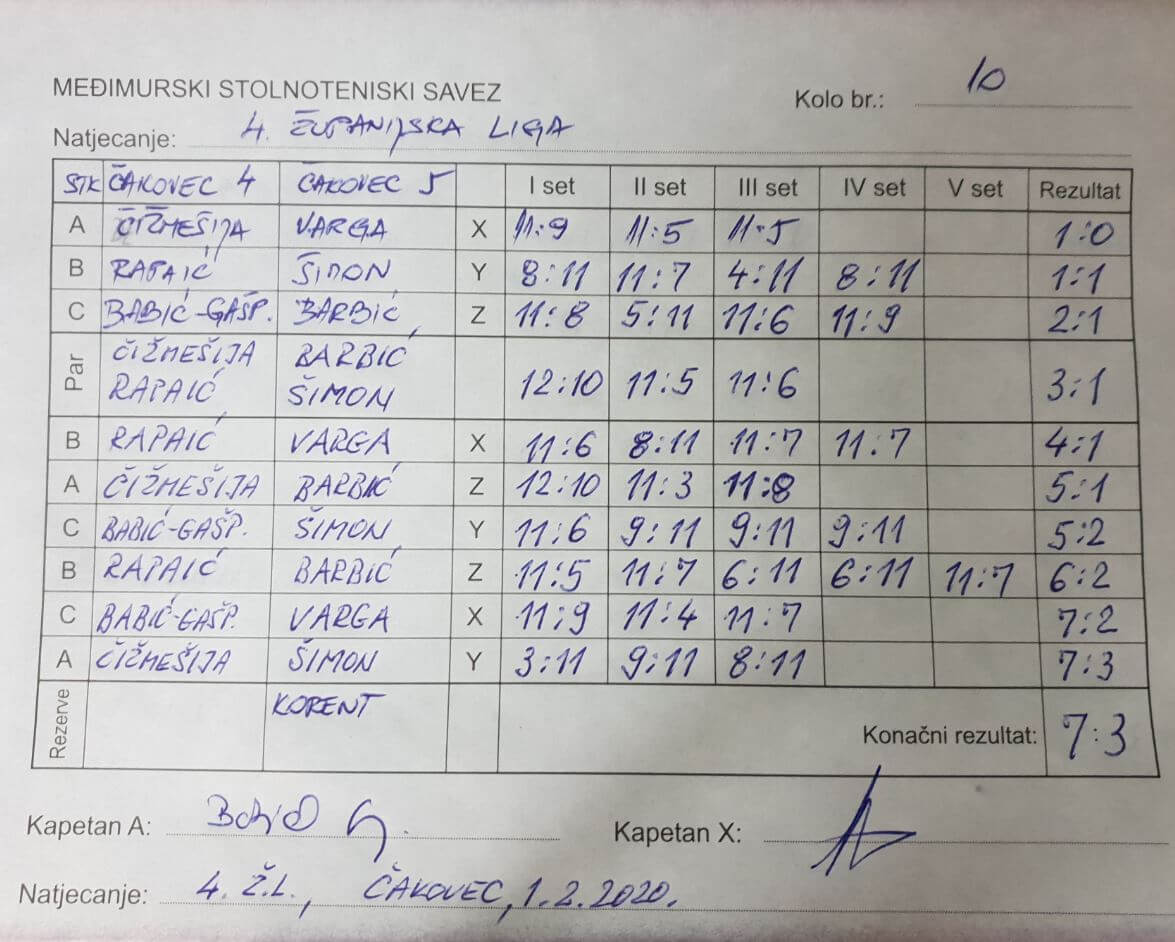 MEĐIMURSKI STOLNOTENISKI SAVEZ
Kolo br.: 10
Natjecanje: 4. ŽUPANIJSKA LIGA
STK ČAKOVEC 4 ČAKOVEC 5 I set II set III set IV set V set Rezultat
A ČIŽMEŠIJA VARGA X 11:9 11:5 11:5 1:0
B RAPAIĆ ŠIMON Y 8:11 11:7 4:11 8:11 1:1
C BABIĆ-GAŠP. BARBIĆ Z 11:8 5:11 11:6 11:9 2:1
Par ČIŽMEŠIJA BARBIĆ
RAPAIĆ ŠIMON 12:10 11:5 11:6 3:1
B RAPAIĆ VARGA X 11:6 8:11 11:7 11:7 4:1
A ČIŽMEŠIJA BARBIĆ Z 12:10 11:3 11:8 5:1
C BABIĆ-GAŠP. ŠIMON Y 11:6 9:11 9:11 9:11 5:2
B RAPAIĆ BARBIĆ Z 11:5 11:7 6:11 6:11 11:7 6:2
C BABIĆ-GAŠP. VARGA X 11:9 11:4 11:7 7:2
A ČIŽMEŠIJA ŠIMON Y 3:11 9:11 8:11 7:3
Rezerve KORENT
Konačni rezultat: 7:3
Kapetan A:
Kapetan X:
Natjecanje: 4. Ž.L., ČAKOVEC, 1.2.2020.